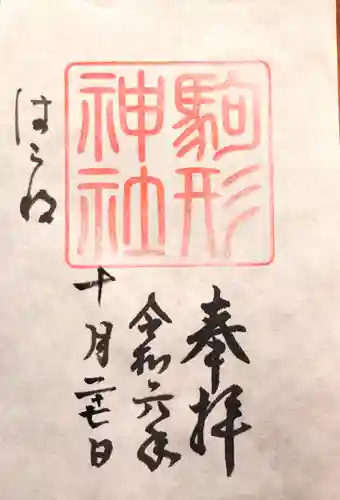 奉拝
駒形
神社
令和六年
十月二十七日
はこね